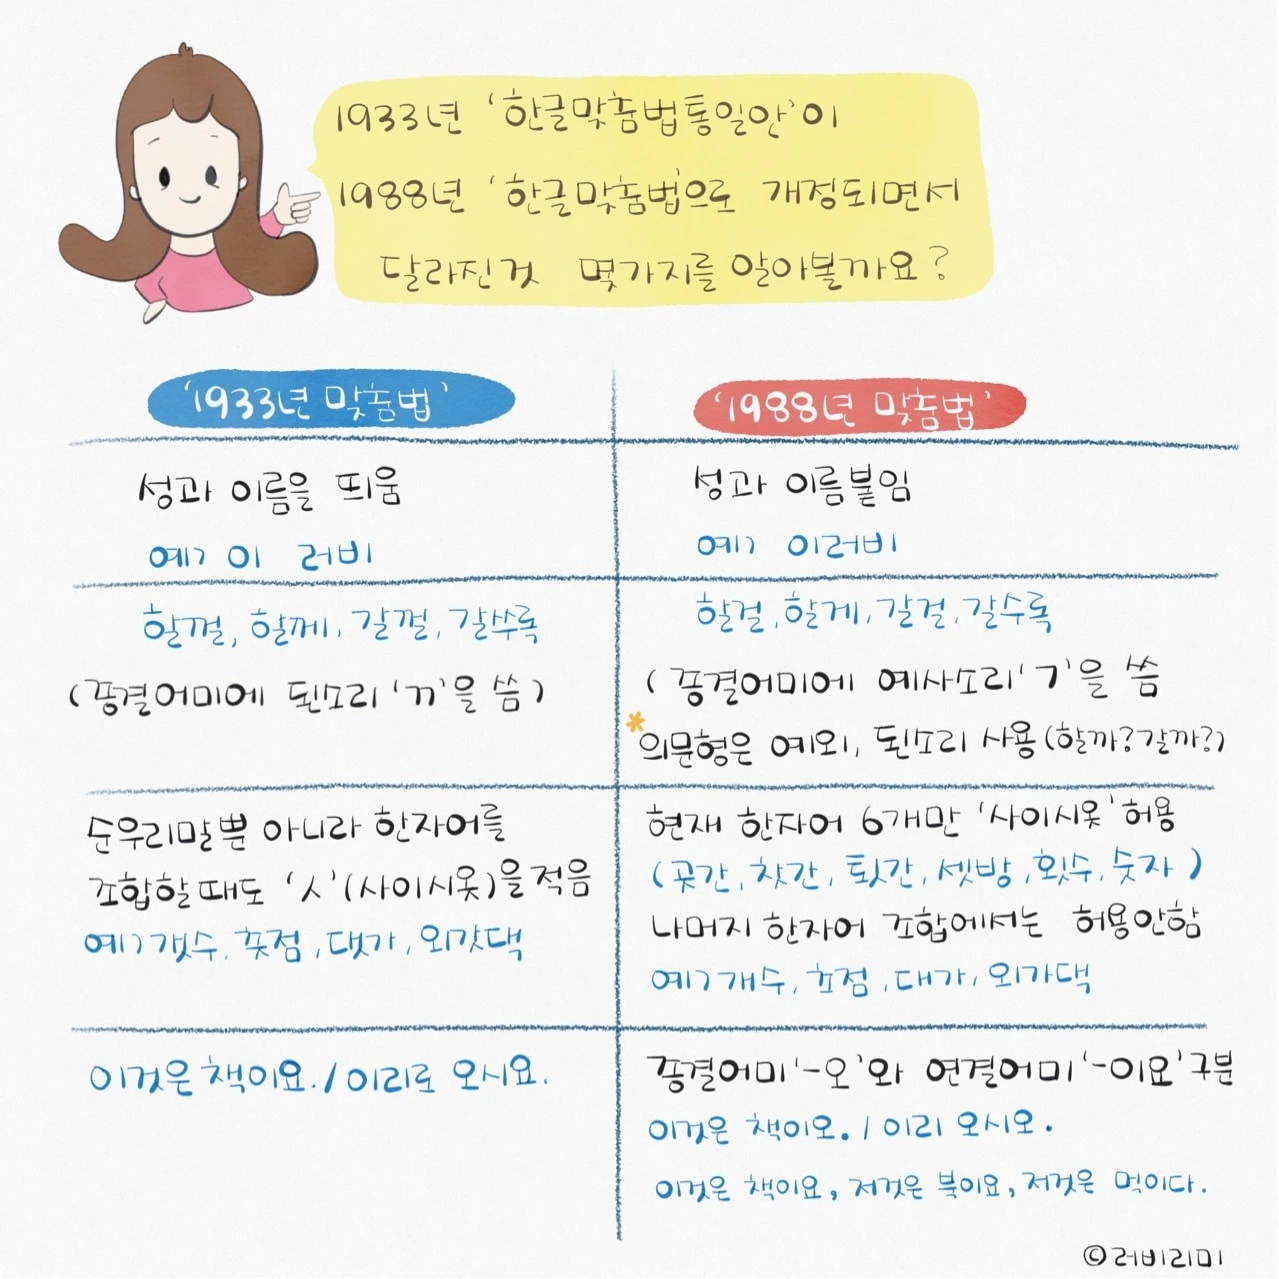 1933년 '한글맞춤법통일안'이
1988년 '한글맞춤법'으로 개정되면서
달라진것 몇가지를 알아볼까요?
'1933년 맞춤법'
성과 이름을 띄움
예) 이 러비
할껄, 할께, 갈껄, 갈쑤록
(종결어미에 된소리 'ㄲ'을 씀)
순우리말뿐 아니라 한자어를
조합할때도 'ㅅ'(사이시옷)을 적음
예) 갯수, 촛점, 댓가, 외갓댁
이것은 책이요. / 이리로 오시요.
'1988년 맞춤법'
성과 이름붙임
예) 이러비
할걸, 할게, 갈걸, 갈수록
(종결어미에 예사소리 'ㄱ'을 씀
*의문형은 예외, 된소리 사용(할까? 갈까?)
현재 한자어 6개만 '사이시옷' 허용
(곳간, 찻간, 툇간, 셋방, 횟수, 숫자)
나머지 한자어 조합에서는 허용안함
예) 개수, 초점, 대가, 외가댁
종결어미 '-오'와 연결어미 '-이요' 구분
이것은 책이오. / 이리 오시오.
이것은 책이요, 저것은 북이요, 저것은 먹이다.
©러비리미